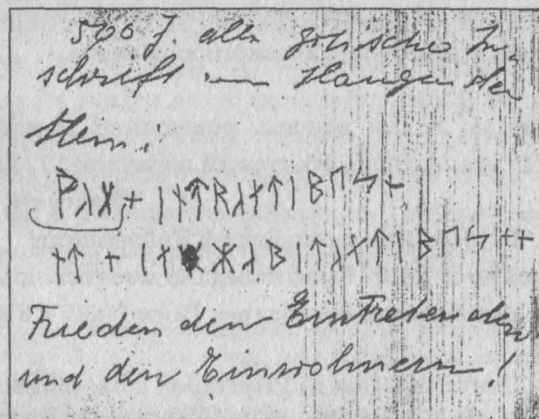 500 J. alte gotische In-
schrift
Stein:
ᚹᛆᚷ + ᛁᚾᛏᚱᛆᚾᛏᛁᛒᚢᛋ +
ᚾᛏ + ᛁᚾᚼᛆᛒᛁᛏᛆᚾᛏᛁᛒᚢᛋ ++
Frieden den Eintretenden
und den Einwohnern!